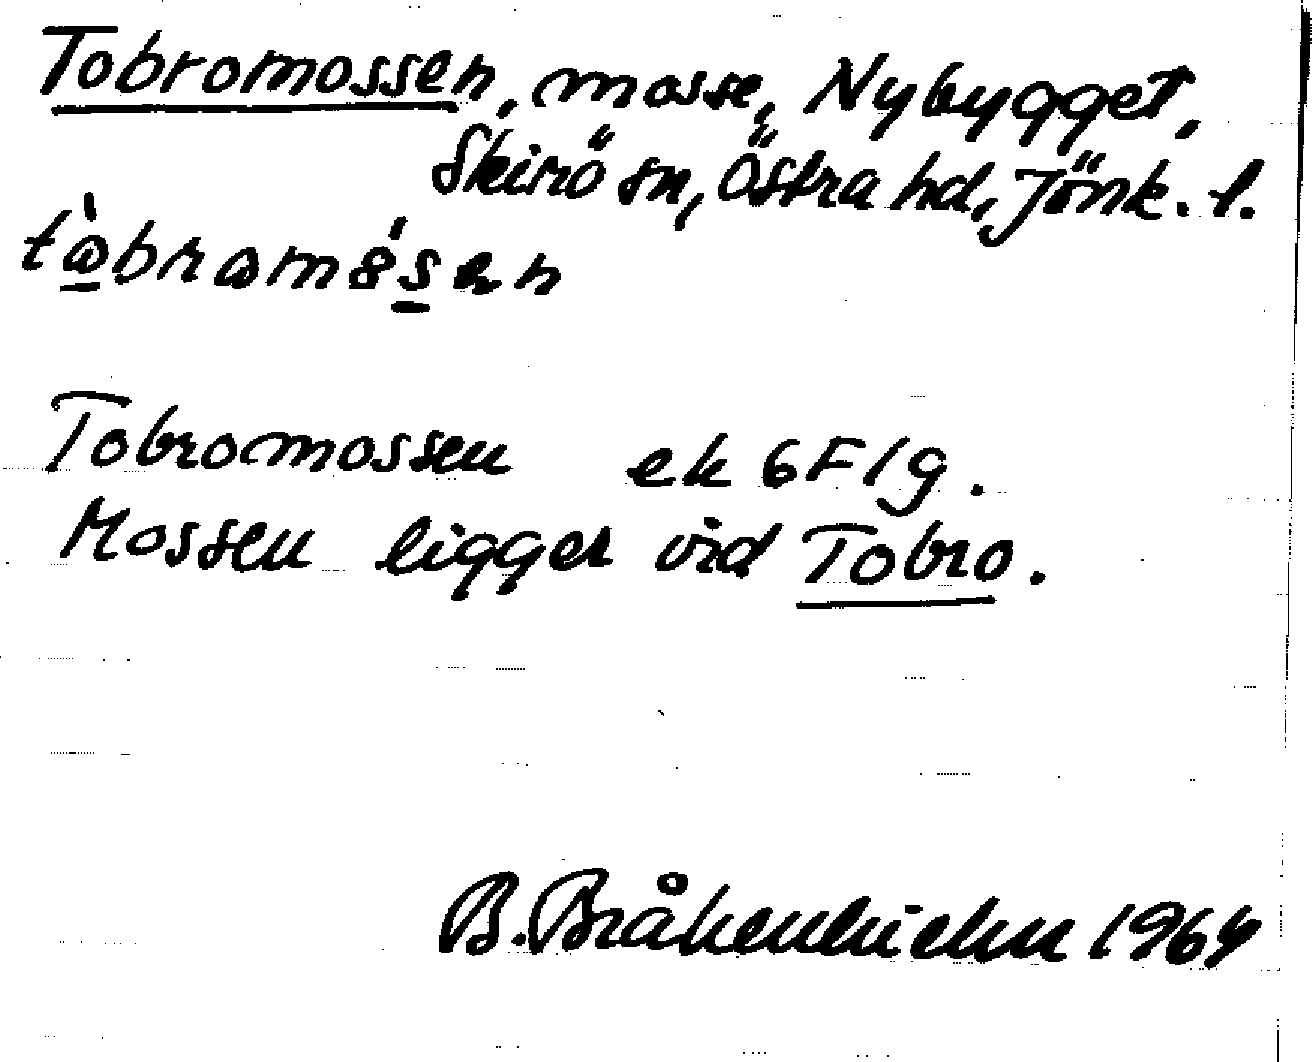 Tobromossen, mosse, Nybygget,
Skirö sn, Östra hd, Jönk. l.
Tobromossen ek 6F1g.
Mossen ligger vid Tobro.
B. Bråkenhielm 1964